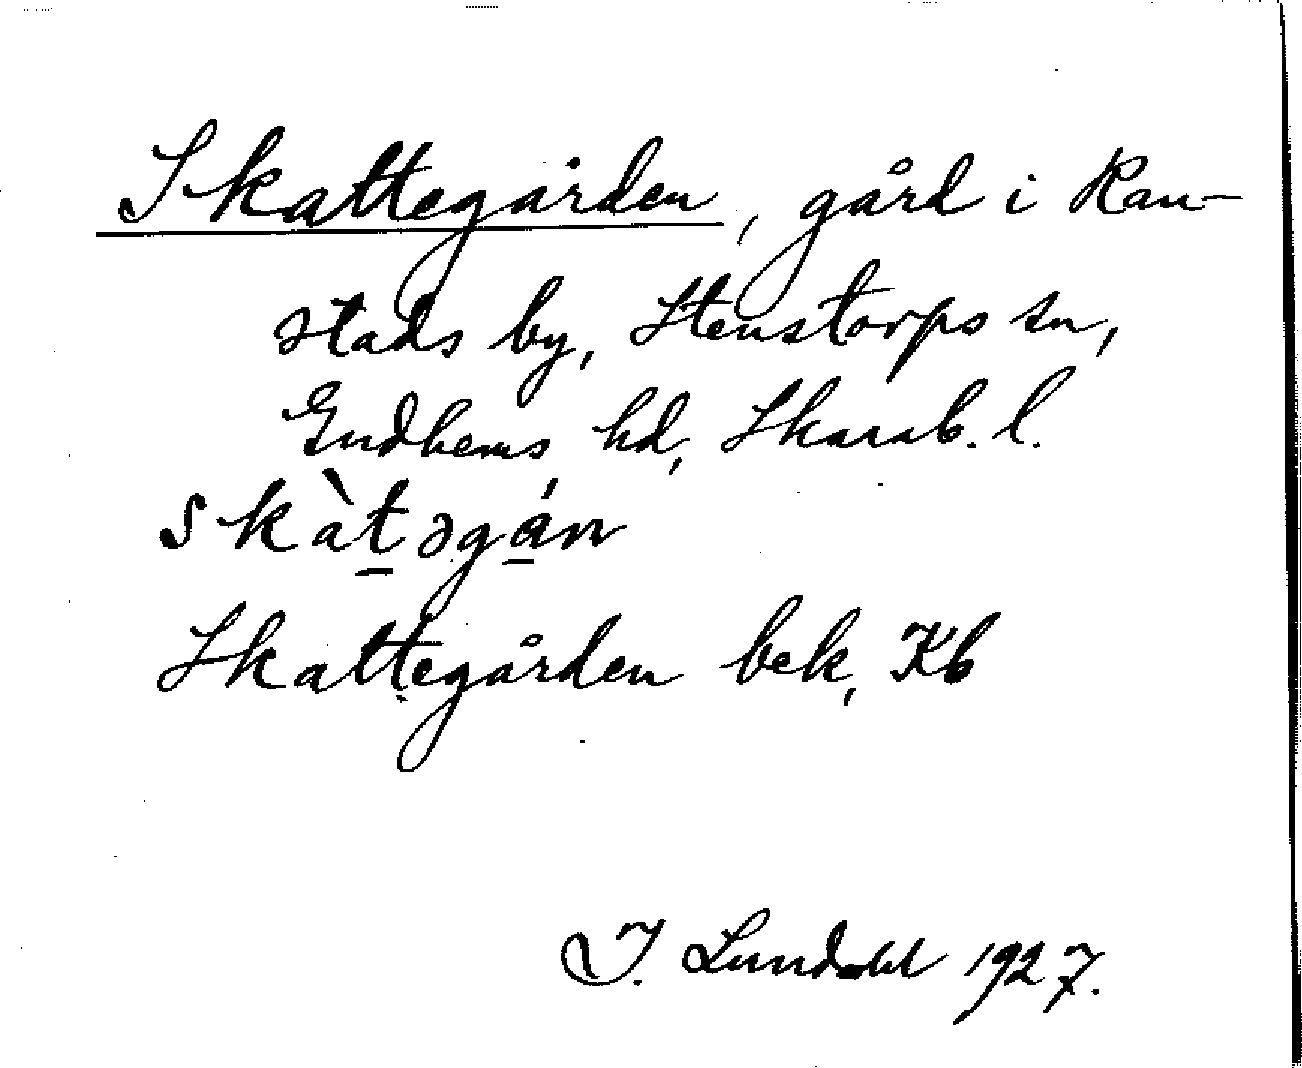 Skattegården, gård i Ran-
stads by, Stenstorps sn,
Gudhems hd, Skarab. l.
skàt̲əgá̲n
Skattegården bek, Kb
J. Lundahl 1927.